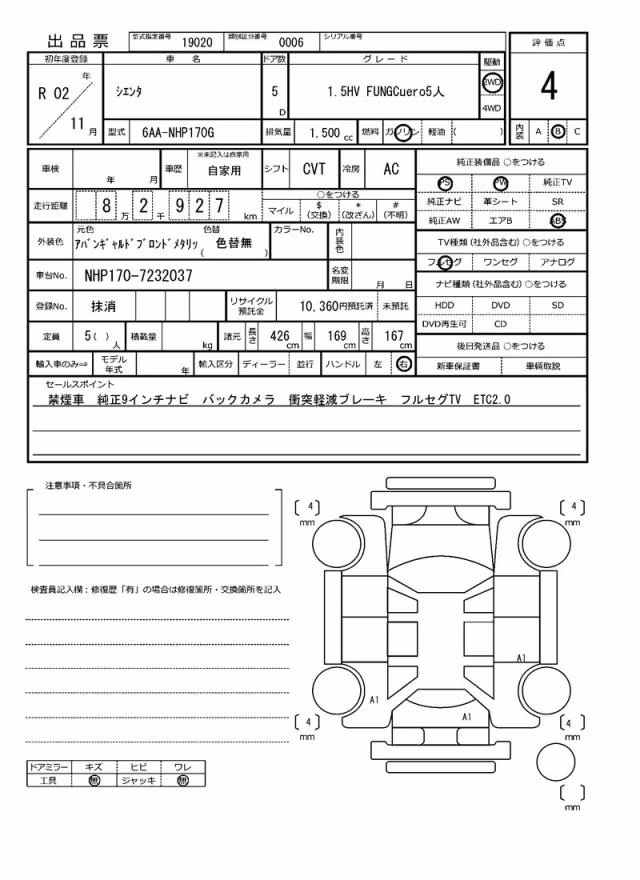 出品票 型式指定番号 19020 類別区分番号 0006 シリアル番号
評価点
4
内装 A B C
初年度登録 車名 ドア数 グレード 駆動
R 02 年 11 月 シエンタ 5 D 1.5HV FUNGCuero5人 2WD 4WD
型式 6AA-NHP170G 排気量 1.500 cc 燃料 ガソリン 軽油 ( )
車検 年 月 車歴 ※未記入は自家用 自家用 シフト CVT 冷房 AC
走行距離 8 万 2 千 9 2 7 km
○をつける
マイル $(交換) *(改ざん) #(不明)
外装色 元色 色替
アバンギャルドブロンドメタリッ ( 色替無 ) カラーNo. 内装色
車台No. NHP170-7232037 名変期限 月 日
登録No. 抹消 リサイクル預託金 10,360円預託済 未預託
定員 5( ) 人 積載量 kg 諸元 長さ 426 cm 幅 169 cm 高さ 167 cm
輸入車のみ⇒ モデル年式 年 輸入区分 ディーラー 並行 ハンドル 左 右
純正装備品 ○をつける
PS PW 純正TV
純正ナビ 革シート SR
純正AW エアB ABS
TV種類(社外品含む)○をつける
フルセグ ワンセグ アナログ
ナビ種類(社外品含む)○をつける
HDD DVD SD
DVD再生可 CD
後日発送品 ○をつける
新車保証書 車輌取説
セールスポイント
禁煙車 純正9インチナビ バックカメラ 衝突軽減ブレーキ フルセグTV ETC2.0
注意事項・不具合箇所
検査員記入欄:修復歴「有」の場合は修復箇所・交換箇所を記入
ドアミラー キズ ヒビ ワレ
工具 無 ジャッキ 無
[ 4 ] mm
[ 4 ] mm
A1
A1
A1
[ 4 ] mm
[ 4 ] mm
[ ] mm